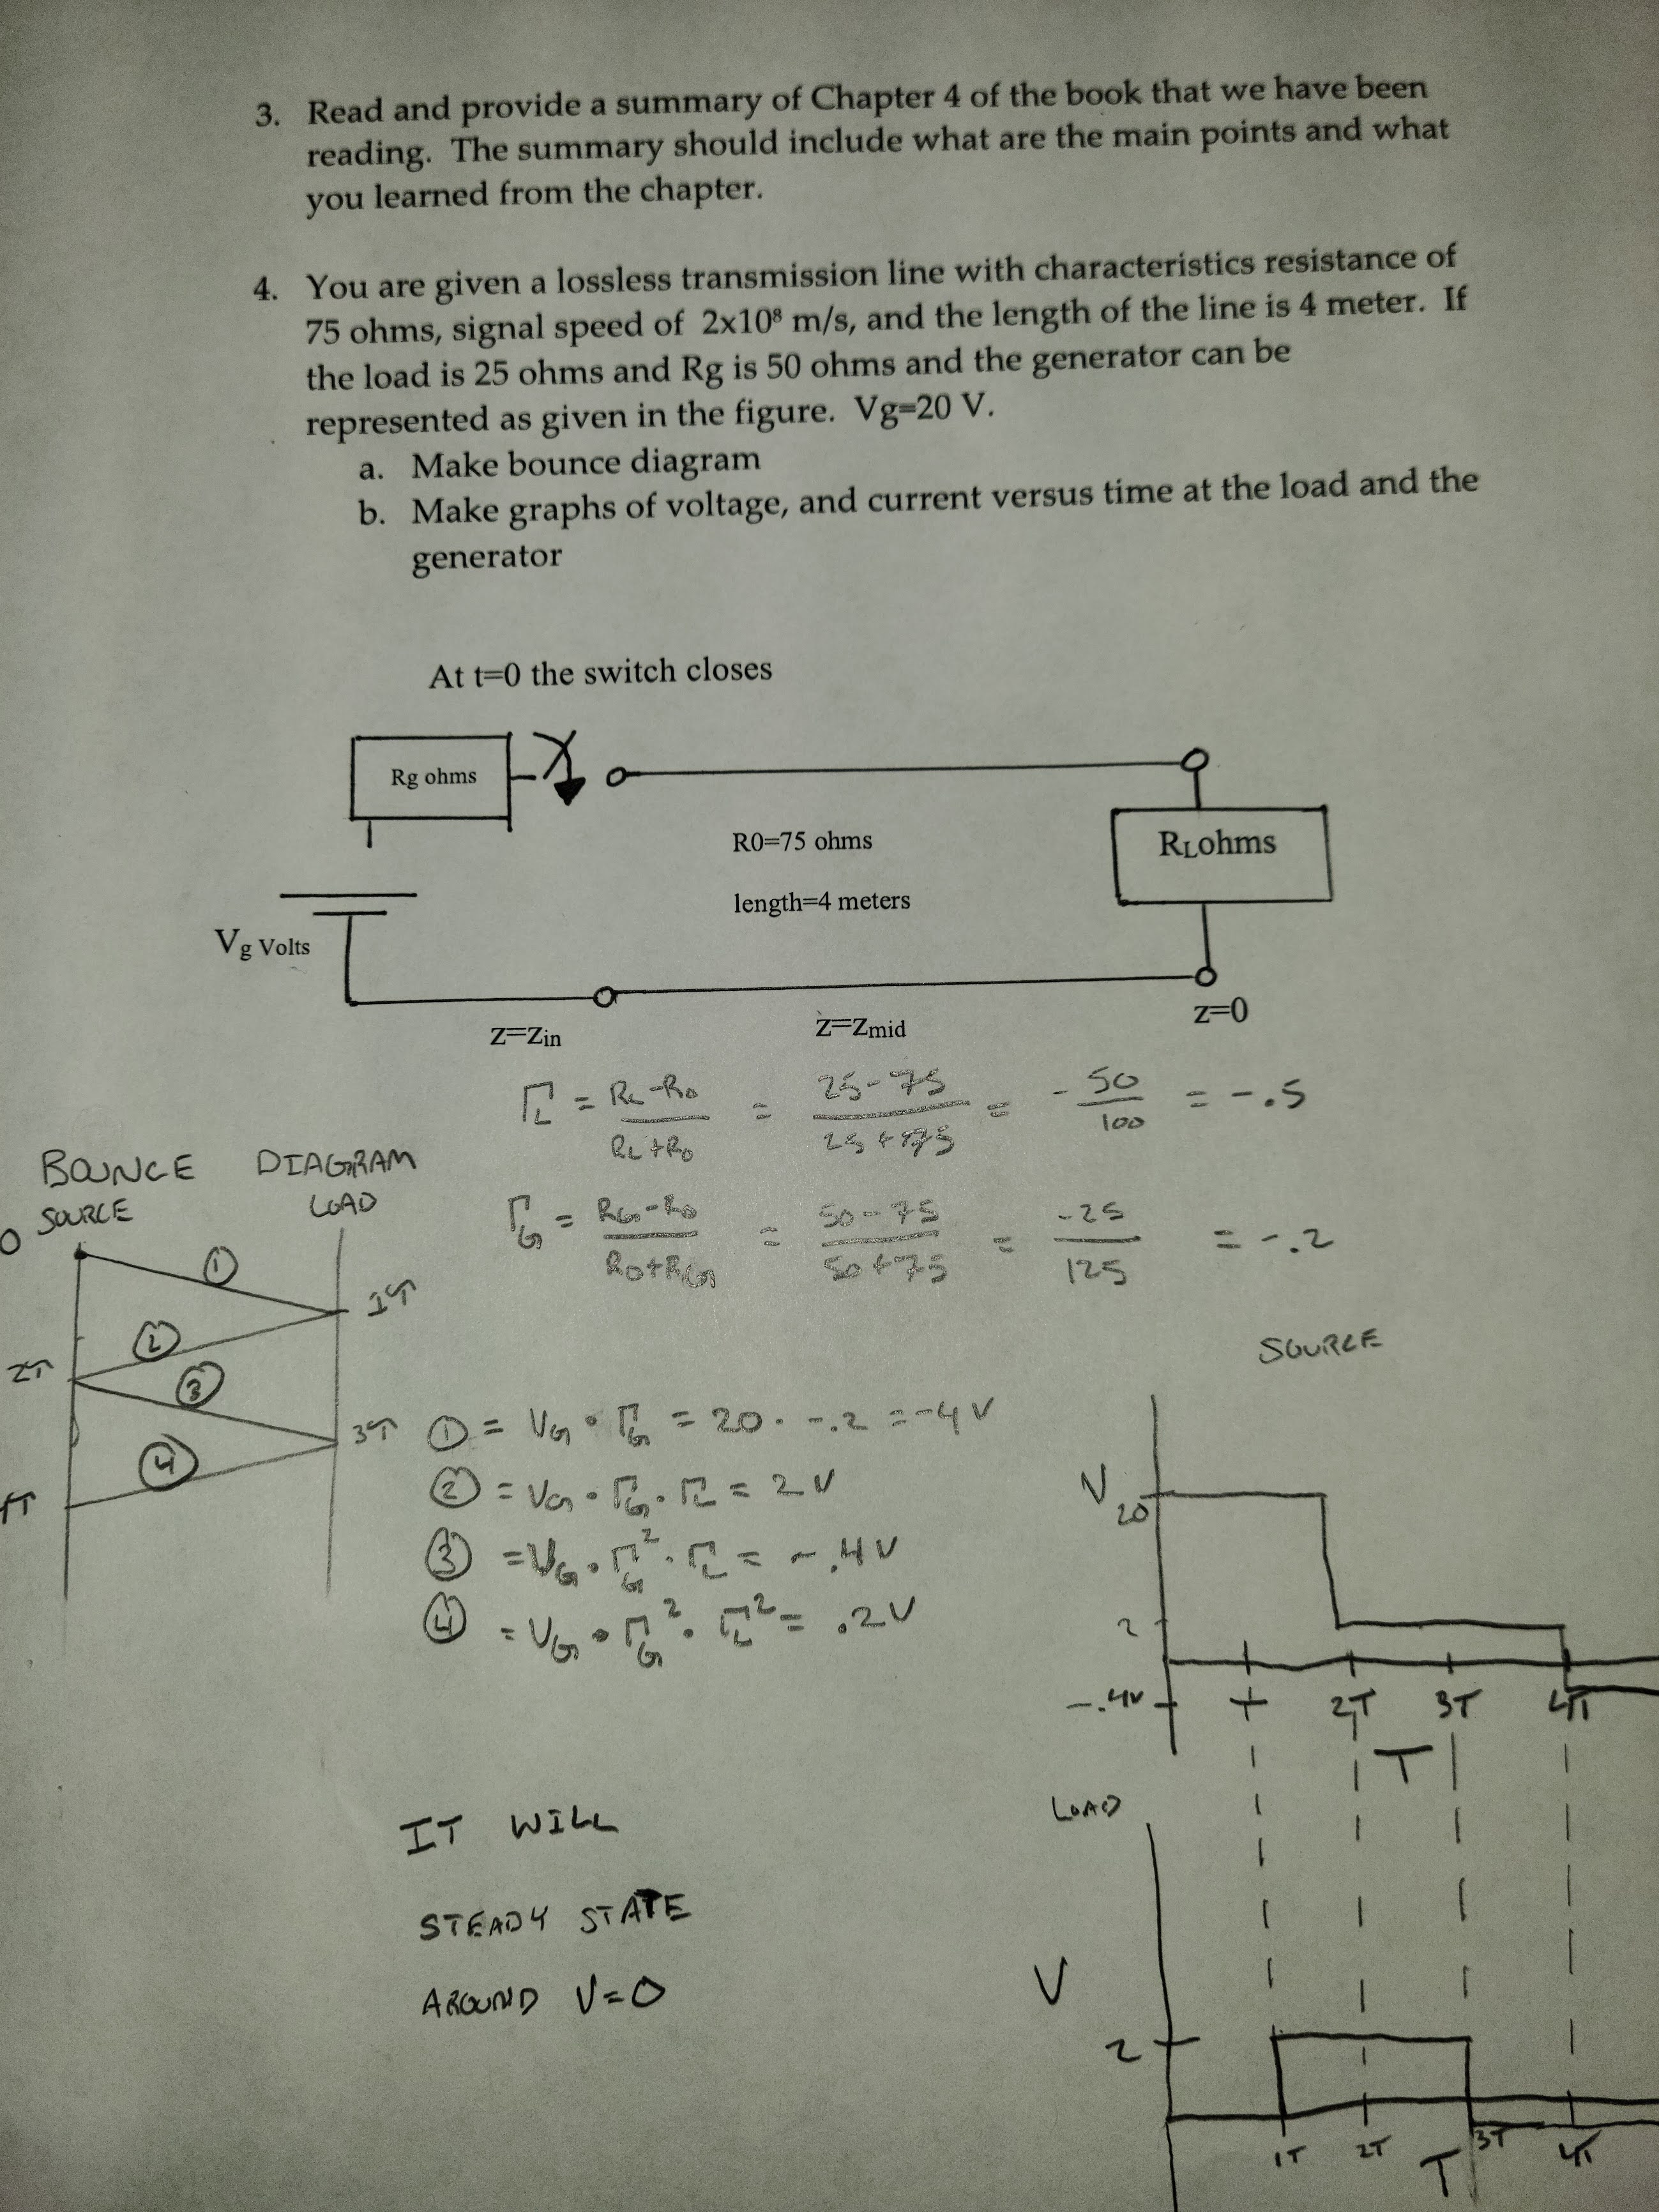 3. Read and provide a summary of Chapter 4 of the book that we have been
reading. The summary should include what are the main points and what
you learned from the chapter.
4. You are given a lossless transmission line with characteristics resistance of
75 ohms, signal speed of 2x10⁸ m/s, and the length of the line is 4 meter. If
the load is 25 ohms and Rg is 50 ohms and the generator can be
represented as given in the figure. Vg=20 V.
a. Make bounce diagram
b. Make graphs of voltage, and current versus time at the load and the
generator
At t=0 the switch closes
Rg ohms
R0=75 ohms
RLohms
length=4 meters
Vg Volts
z=zin
z=zmid
z=0
ΓL = RL-R0 / RL+R0 = 25-75 / 25+75 = -50 / 100 = -.5
ΓG = RG-R0 / R0+RG = 50-75 / 50+75 = -25 / 125 = -.2
BOUNCE DIAGRAM
SOURCE LOAD
0
①
1T
②
2T
③
3T
④
4T
① = VG · ΓG = 20 · -.2 = -4 V
② = VG · ΓG · ΓL = 2 V
③ = VG · ΓG² · ΓL = -.4 V
④ = VG · ΓG² · ΓL² = .2 V
IT WILL
STEADY STATE
AROUND V=0
SOURCE
V
20
2
-.4V
T 2T 3T 4T
T
LOAD
V
2
1T 2T 3T 4T
T